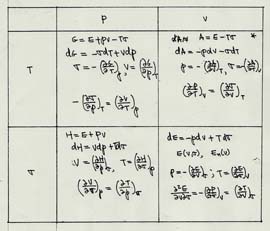 P V
T
G = E + PV - τσ
dG = -σdτ + Vdp
σ = -(∂G/∂τ)_p, V = (∂G/∂p)_τ
-(∂σ/∂p)_τ = (∂V/∂τ)_p
A = E - τσ *
dA = -pdV - σdτ
p = -(∂A/∂V)_τ, σ = -(∂A/∂τ)_V
(∂p/∂τ)_V = (∂σ/∂V)_τ
σ
H = E + PV
dH = Vdp + τdσ
V = (∂H/∂p)_σ, T = (∂H/∂σ)_p
(∂V/∂σ)_p = (∂τ/∂p)_σ
dE = -pdV + τdσ
E(V,σ), E_σ(V)
p = -(∂E/∂V)_σ; T = (∂E/∂σ)_V
∂²E/∂V∂σ = -(∂p/∂σ)_V = (∂τ/∂V)_σ